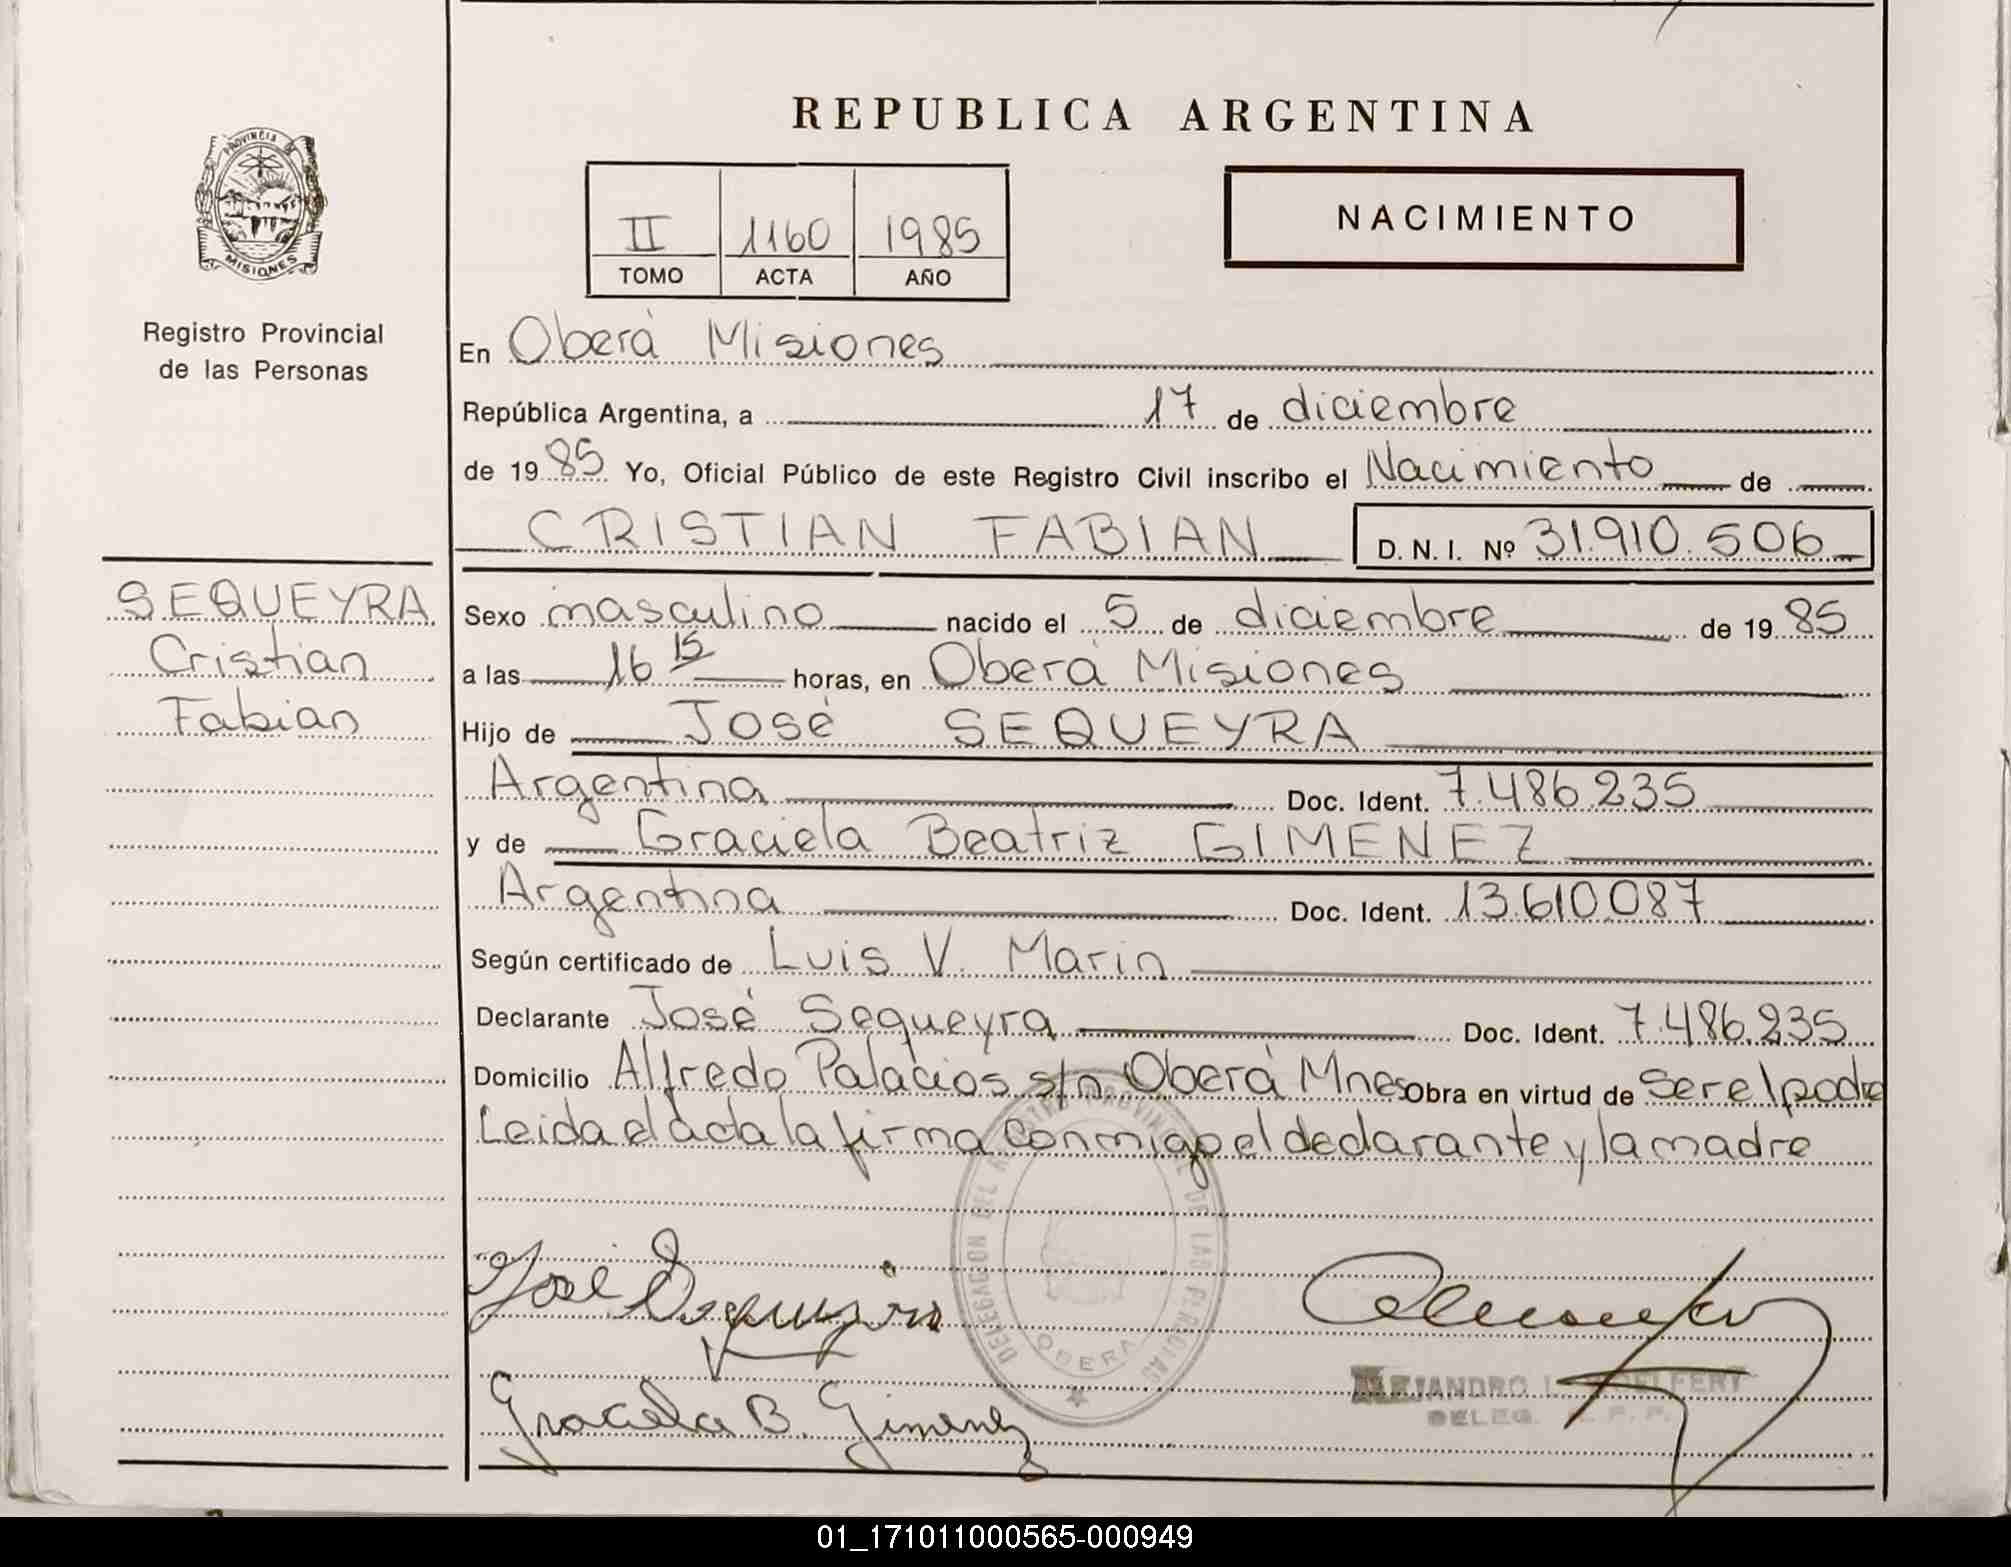 REPUBLICA ARGENTINA
PROVINCIA DE
MISIONES
II 1160 1985
TOMO ACTA AÑO
NACIMIENTO
Registro Provincial
de las Personas
En Oberá Misiones
República Argentina, a 17 de diciembre
de 1985 Yo, Oficial Público de este Registro Civil inscribo el Nacimiento de
CRISTIAN FABIAN D. N. I. Nº 31.910.506
SEQUEYRA
Cristian
Fabian
Sexo masculino nacido el 5 de diciembre de 1985
a las 16 15 horas, en Oberá Misiones
Hijo de José SEQUEYRA
Argentina Doc. Ident. 7.486.235
y de Graciela Beatriz GIMENEZ
Argentina Doc. Ident. 13.610.087
Según certificado de Luis V. Marin
Declarante José Sequeyra Doc. Ident. 7.486.235
Domicilio Alfredo Palacios s/n Oberá Mnes Obra en virtud de ser el padre
Leida el acta la firma conmigo el declarante y la madre
DELEGACION DEL REGISTRO PROVINCIAL DE LAS PERSONAS
OBERA
José Sequeyra
Graciela B. Gimenez
ALEJANDRO
DELEG. R. P. P.
01_171011000565-000949